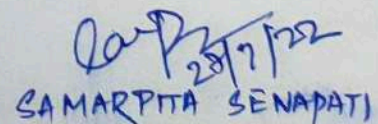 28/7/22
SAMARPITA SENAPATI